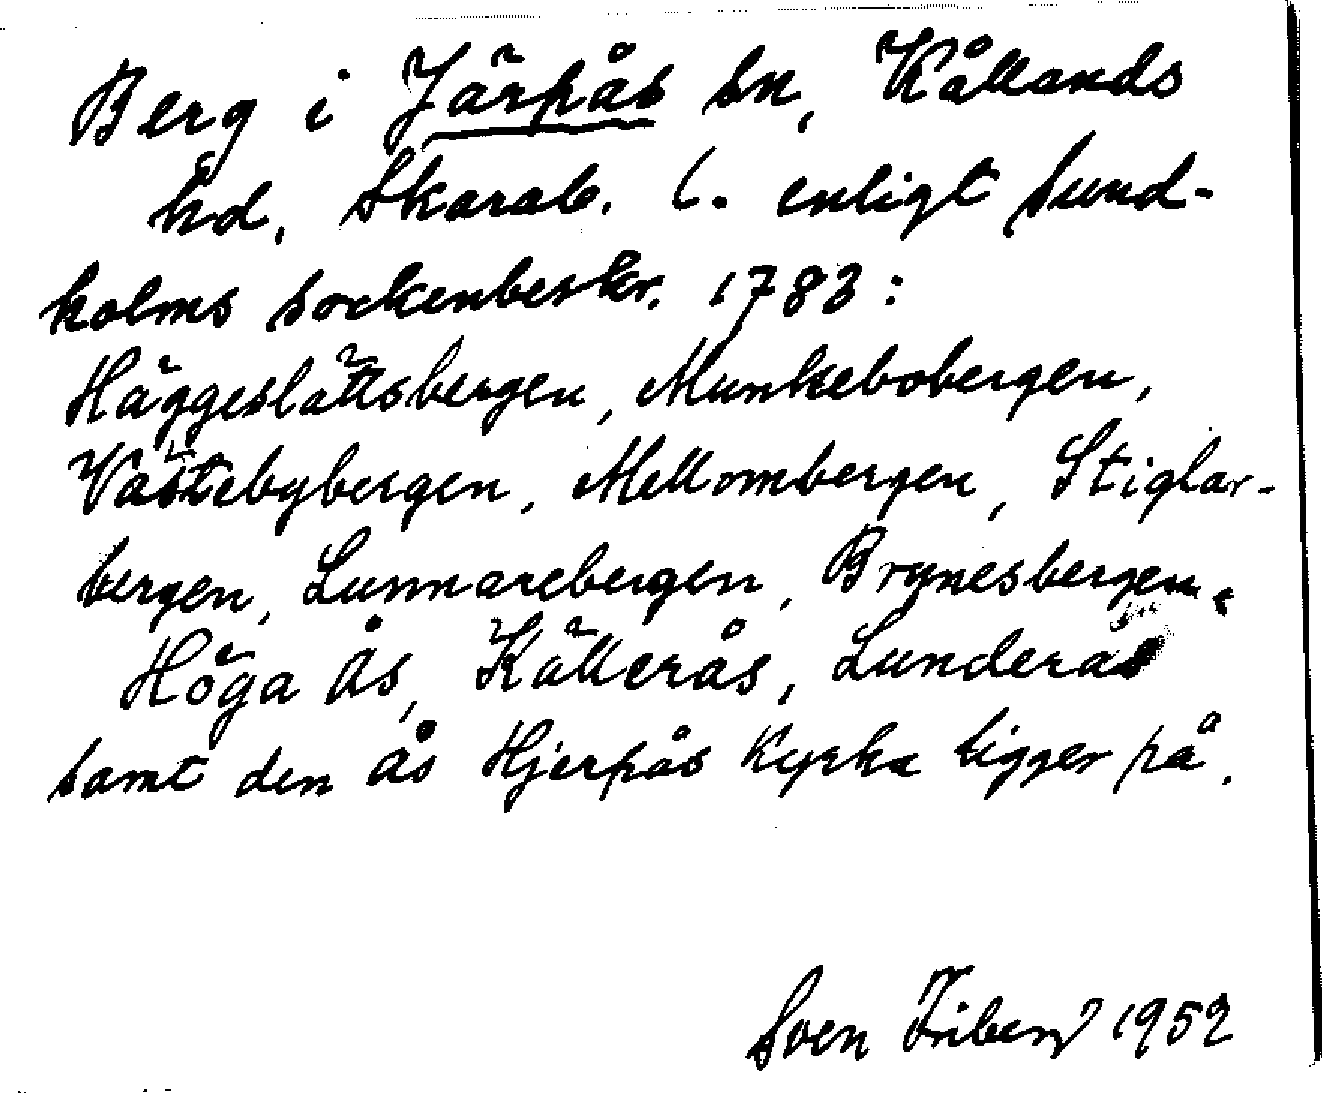 Berg i Järpås sn, Kållands
hd, Skarab. l. enligt Sund-
holms sockenbeskr. 1783:
Häggeslättsbergen, Munkebobergen,
Västebybergen, Mellombergen, Stiglar-
bergen, Lunnarebergen, Brynesbergen,
Höga Ås, Källerås, Lunderås
samt den ås Hjerpås Kyrka ligger på.
Sven Friberg 1952